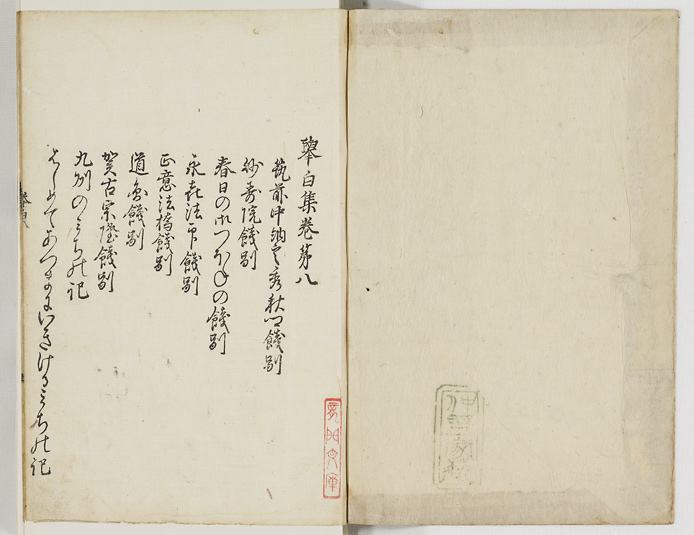 擧白集巻第八
筑前中納言秀秋公餞別
妙壽院餞別
春日の局つほねの餞別
永喜法印餞別
正意法橋餞別
道圓餞別
賀古宗隆餞別
九州のみちの記
はしめてあつまにいきけるみちの記